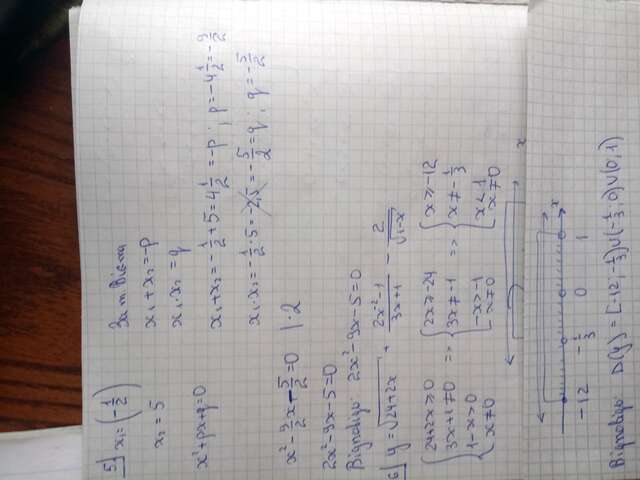 5) x₁ = (-1/2)
x₂ = 5
x² + px + q = 0
За т Вієта
x₁ + x₂ = -p
x₁ · x₂ = q
x₁ + x₂ = -1/2 + 5 = 4 1/2 = -p; p = -4 1/2 = -9/2
x₁ · x₂ = -1/2 · 5 = -2,5 = -5/2 = q; q = -5/2
x² - 9/2 x - 5/2 = 0 | · 2
2x² - 9x - 5 = 0
Відповідь: 2x² - 9x - 5 = 0
6) y = √(24+2x) + (2x⁻² - 1)/(3x+1) - 2/√(1-x)
{ 24+2x ≥ 0 => { 2x ≥ -24 => { x ≥ -12
3x+1 ≠ 0 3x ≠ -1 x ≠ -1/3
1-x > 0 -x > -1 x < 1
x ≠ 0 x ≠ 0 x ≠ 0
x
x
-12 -1/3 0 1
Відповідь: D(y) = [-12, -1/3) U (-1/3, 0) U (0, 1)